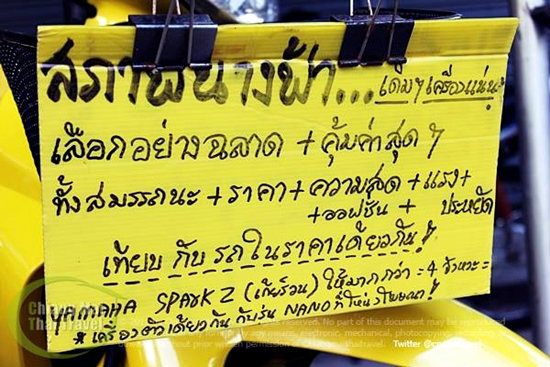 สภาพนางฟ้า... เดิมๆ เครื่องแน่น!
เลือกอย่างฉลาด + คุ้มค่าสุดๆ
ทั้งสมรรถนะ + ราคา + ความสุด + แรง +
+ ออฟชั่น + ประหยัด
เทียบ กับ รถในราคาเดียวกัน!!
YAMAHA SPARK Z (เกียร์วน) ให้มากกว่า = 4 จังหวะ =
* เครื่องตัวเดียวกัน กับรุ่น NANO ที่ใหน
Chiang Mai
Thai Travel
reserved. No part of this document may be reproduced
electronic, mechanical, photocopying,
without prior written permission of Twitter